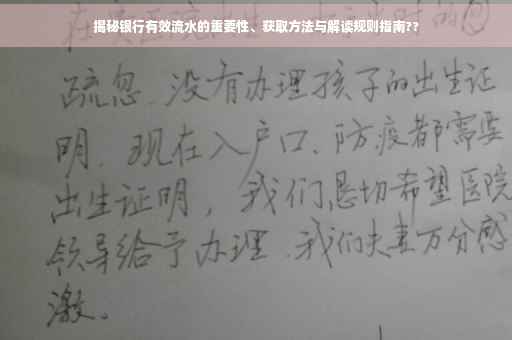 揭秘银行有效流水的重要性、获取方法与解读规则指南??
疏忽.没有办理孩子的出生证
明.现在入户口、防疫都需要
出生证明，我们恳切希望医院
领导给予办理.我们夫妻万分感
激。